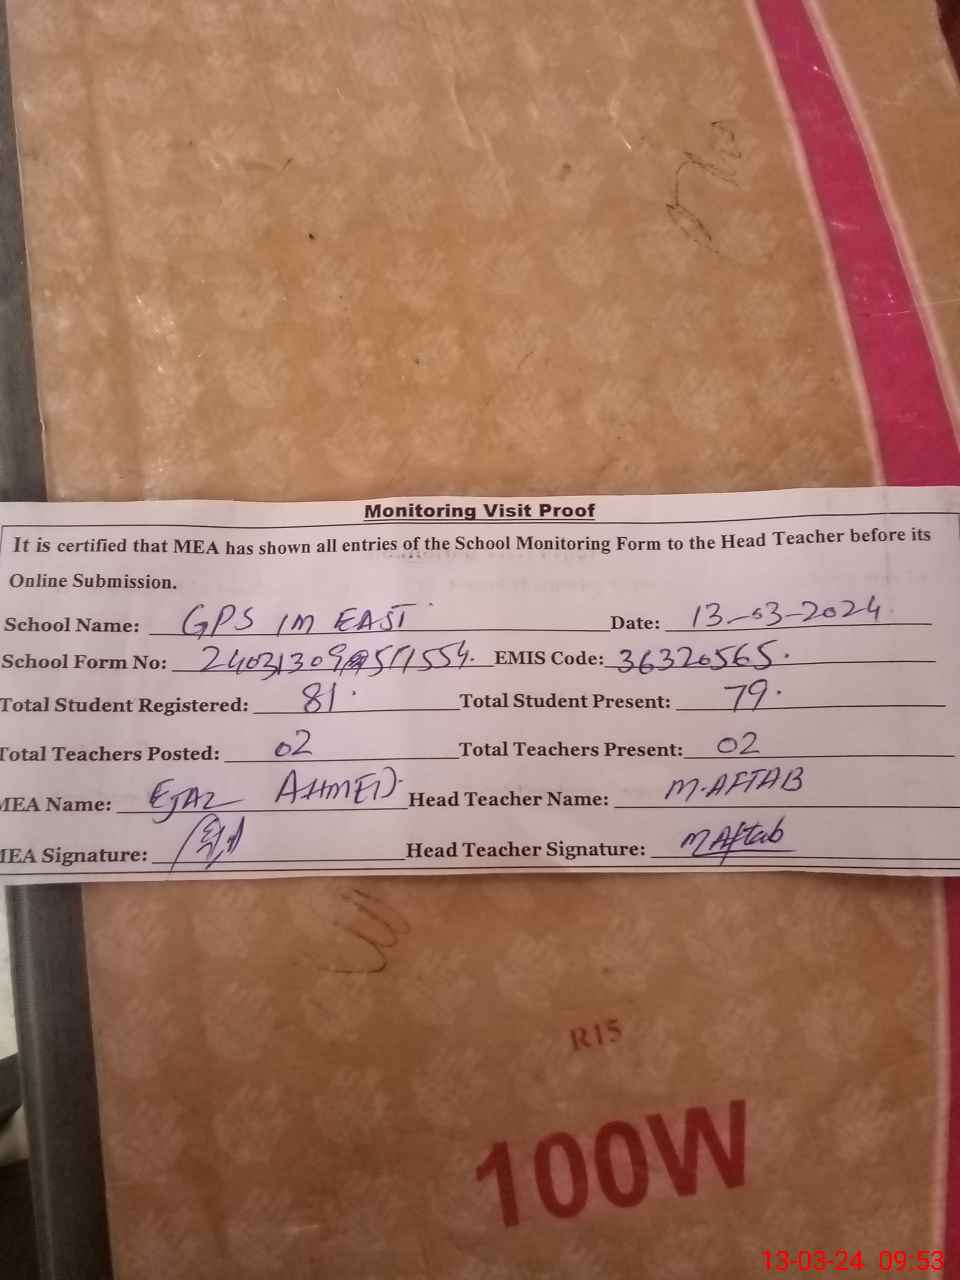 Monitoring Visit Proof
It is certified that MEA has shown all entries of the School Monitoring Form to the Head Teacher before its
Online Submission.
School Name: GPS 1M EAST Date: 13-03-2024
School Form No: EMIS Code: 36320565.
Total Student Registered: 81. Total Student Present: 79.
Total Teachers Posted: 02 Total Teachers Present: 02
MEA Name: EJAZ AHMED Head Teacher Name: M.AFTAB
MEA Signature: Head Teacher Signature: M Aftab
R15
100W
13-03-24 09:53